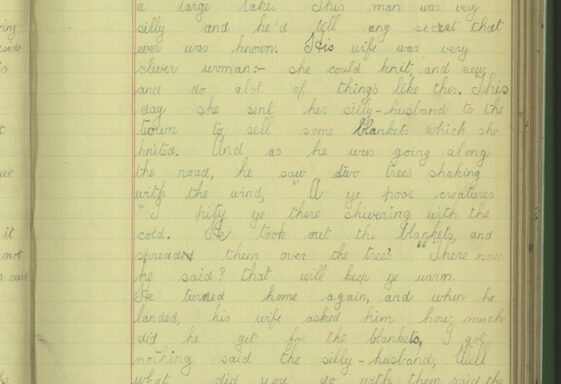 a large lake. This man was very
silly and he'd tell any secret that
ever was known. His wife was very
clever woman:- she could knit, and sew,
and do alot of things like this. This
day she sent her silly-husband to the
town to sell some blankets which she
knited. And as he was going along
the road, he saw two trees shaking
with the wind, "A ye poor creatures
"I pity ye there shivering with the
cold. He took out the blankets, and
spredded them over the trees "There now
he said? that will keep ye warm.
He turned home again, and when he
landed, his wife asked him how much
did he get for the blankets, I got
nothing said the silly-husband, Well
what did you do with them said the
it
not
said